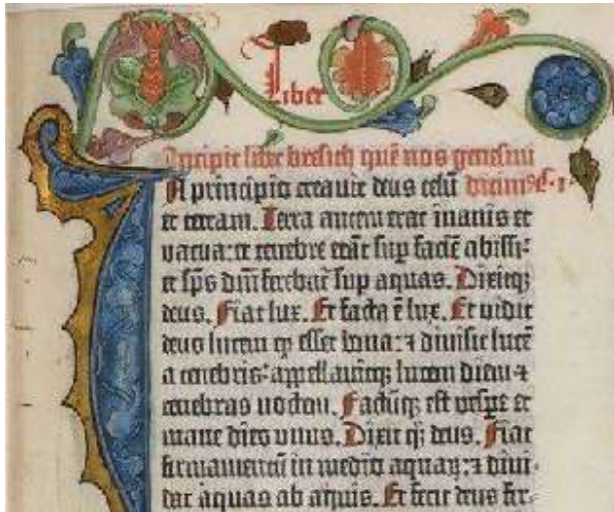 Liber
Incipit liber bresich quē nos genesim
A principio creavit deus celū dicimꝰ
et terram. Terra autem erat inanis et
vacua: et tenebre erāt sup faciē abissi:
et sp̄s dn̄i ferebat̄ sup aquas. Dixitqꝫ
deus. Fiat lux. Et facta ē lux. Et vidit
deus lucem ꝙ esset bona: ⁊ divisit lucē
a tenebris: appellavitqꝫ lucem diem ⁊
tenebras noctem. Factūqꝫ est vespe et
mane dies unus. Dixit qꝫ deus. Fiat
firmamentū in medio aquaꝝ: ⁊ divi-
dat aquas ab aquis. Et fecit deus fir-